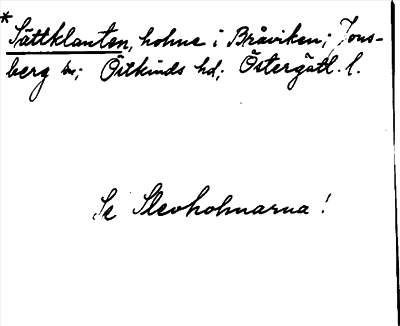 *Sättklanten, holme i Bråviken; Jons-
berg sn; Östkinds hd; Östergötl. l.
Se Slevholmarna!